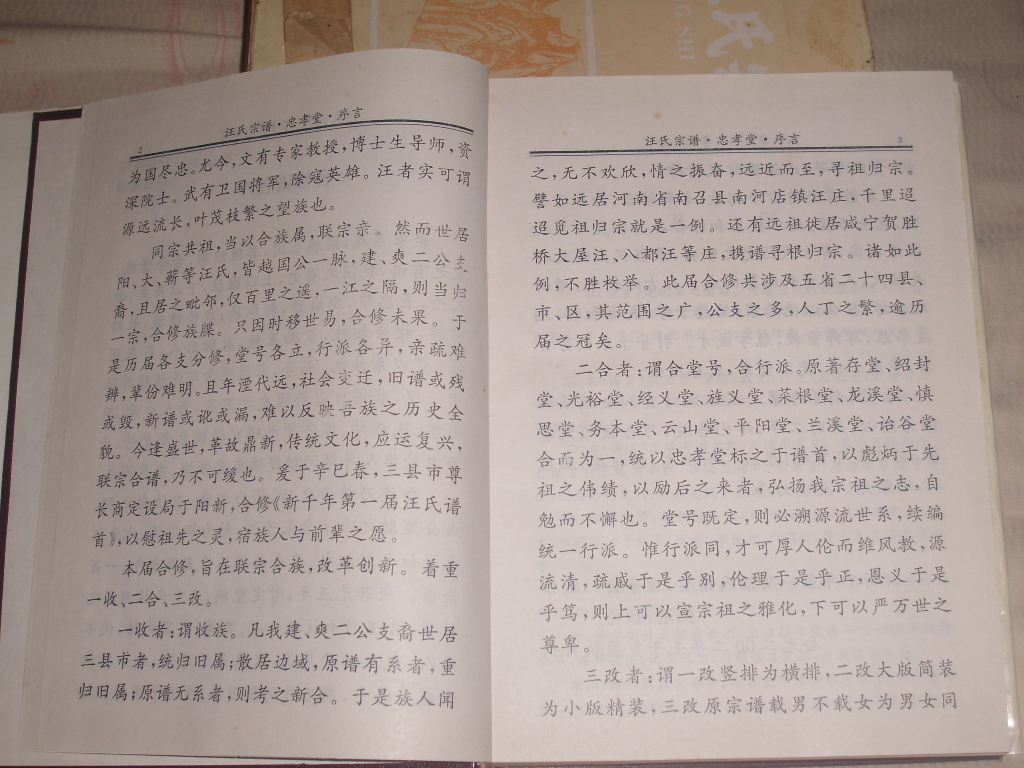 氏
SHI
汪氏宗谱·忠孝堂·序言
2
为国尽忠。尤今，文有专家教授，博士生导师，资
深院士。武有卫国将军，除寇英雄。汪者实可谓
源远流长，叶茂枝繁之望族也。
同宗共祖，当以合族属，联宗亲。然而世居
阳、大、蕲等汪氏，皆越国公一脉，建、爽二公支
裔，且居之毗邻，仅百里之遥，一江之隔，则当归
一宗，合修族牒。只因时移世易，合修未果。于
是历届各支分修，堂号各立，行派各异，亲疏难
辨，辈份难明。且年湮代远，社会变迁，旧谱或残
或毁，新谱或讹或漏，难以反映吾族之历史全
貌。今逢盛世，革故鼎新，传统文化，应运复兴，
联宗合谱，乃不可缓也。爰于辛巳春，三县市尊
长商定设局于阳新，合修《新千年第一届汪氏谱
首》，以慰祖先之灵，宿族人与前辈之愿。
本届合修，旨在联宗合族，改革创新。着重
一收、二合、三改。
一收者：谓收族。凡我建、爽二公支裔世居
三县市者，统归旧属；散居边域，原谱有系者，重
归旧属；原谱无系者，则考之新合。于是族人闻
汪氏宗谱·忠孝堂·序言
3
之，无不欢欣，情之振奋，远近而至，寻祖归宗。
譬如远居河南省南召县南河店镇汪庄，千里迢
迢觅祖归宗就是一例。还有远祖徙居咸宁贺胜
桥大屋汪、八都汪等庄，携谱寻根归宗。诸如此
例，不胜枚举。此届合修共涉及五省二十四县、
市、区，其范围之广，公支之多，人丁之繁，逾历
届之冠矣。
二合者：谓合堂号，合行派。原著存堂、绍封
堂、光裕堂、经义堂、旌义堂、菜根堂、龙溪堂、慎
思堂、务本堂、云山堂、平阳堂、兰溪堂、诒谷堂
合而为一，统以忠孝堂标之于谱首，以彪炳于先
祖之伟绩，以励后之来者，弘扬我宗祖之志，自
勉而不懈也。堂号既定，则必溯源流世系，续编
统一行派。惟行派同，才可厚人伦而维风教，源
流清，疏戚于是乎别，伦理于是乎正，恩义于是
乎笃，则上可以宣宗祖之雅化，下可以严万世之
尊卑。
三改者：谓一改竖排为横排，二改大版简装
为小版精装，三改原宗谱载男不载女为男女同